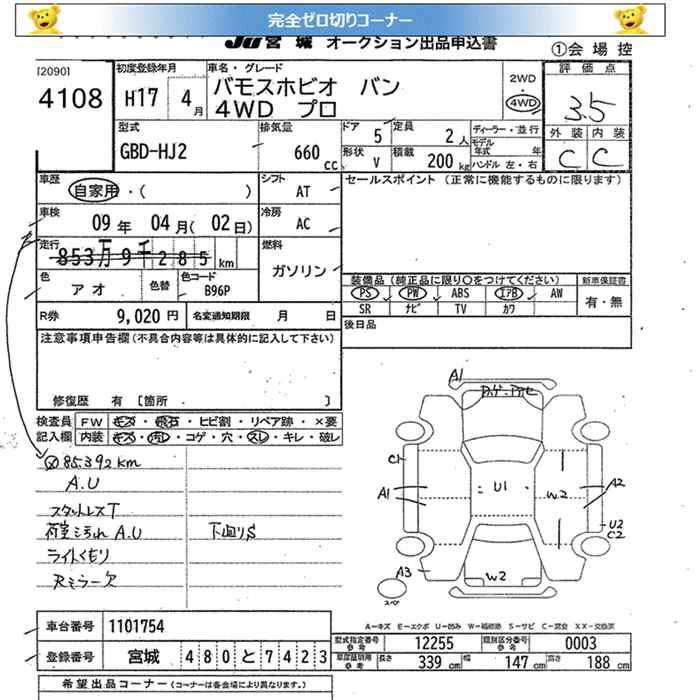 完全ゼロ切りコーナー
JU 宮城 オークション出品申込書
①会場控
[2090]
4108
初度登録年月
H17 4月
車名・グレード
バモスホビオ バン
4WD プロ
2WD
・
4WD
評価点
3.5
外装 内装
C C
型式
GBD-HJ2
排気量
660 cc
ドア 5
定員 2人
形状 V
積載 200 kg
ディーラー・並行
モデル年式 年
ハンドル 左・右
車歴
自家用・( )
シフト
AT
車検
09年 04月(02日)
冷房
AC
走行
853万9千285 km
燃料
ガソリン
色
アオ
色替
色コード
B96P
R券 9,020円
名変通知期限 月 日
セールスポイント (正常に機能するものに限ります)
装備品(純正品に限り○をつけてください)
新車保証書
PS PW ABS エアB AW
有・無
SR ナビ TV カワ
後日品
注意事項申告欄(不具合内容等は具体的に記入して下さい)
修復歴 有 [箇所 ]
検査員記入欄
FW キズ・飛石・ヒビ割・リペア跡・×要
内装 キズ・汚レ・コゲ・穴・スレ・キレ・破レ
85,392km
A.U
スタットレスT
荷室ミ汚れ A.U
下廻りS
ライトくもり
Rミラー欠
A1
C1
A1
U1
W2
A2
U2
C2
A3
W2
スペア
A-キズ E-エクボ U-凹み W-補修跡 S-サビ C-腐食 XX-交換済
車台番号 1101754
登録番号 宮城 480と7423
型式指定番号 参考 12255
類別区分番号 参考 0003
車庫証明用 参考
長さ 339 cm
幅 147 cm
高さ 188 cm
希望出品コーナー(コーナーは各会場により異なります。)